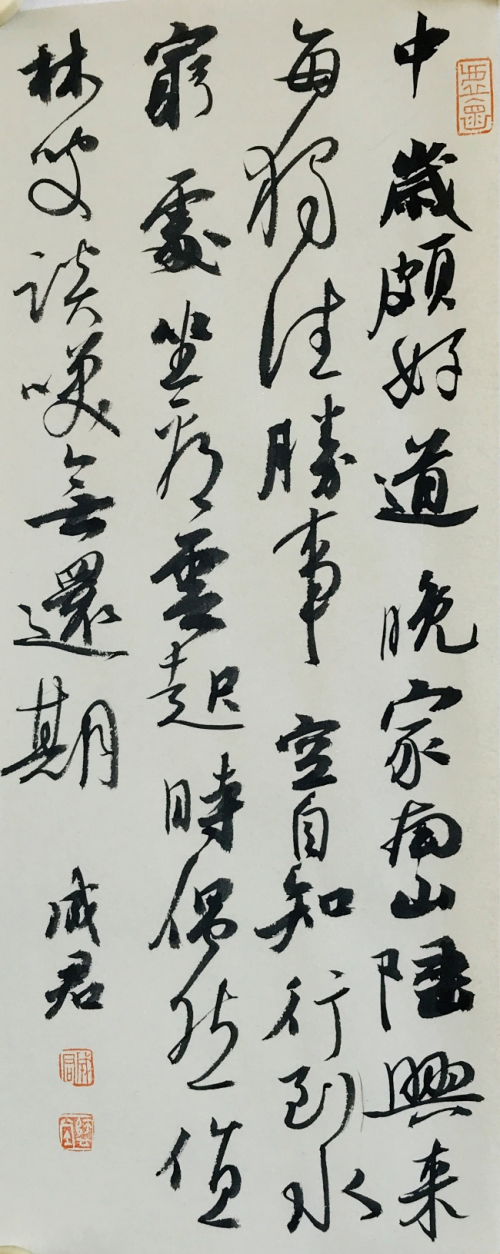 中歲頗好道晚家南山陲興来
每獨往勝事空自知行到水
窮處坐看雲起時偶然值
林叟談笑無還期
成君